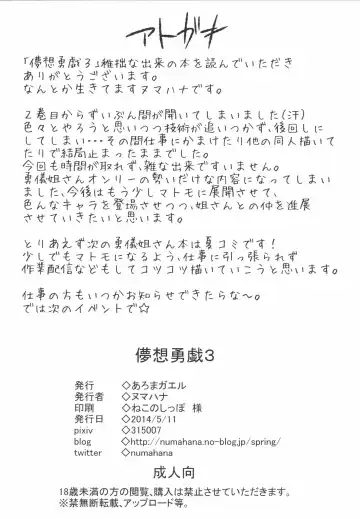 アトガキ
「儚想勇戯３」稚拙な出来の本を読んでいただき
ありがとうございます。
なんとか生きてますヌマハナです。
２巻目からずいぶん間が開いてしまいました(汗)
色々とやろうと思いつつ技術が追いつかず、後回しに
してしまい･･･その間仕事にかまけたり他の同人描いて
たりで結局止まったままでした。
今回も時間が取れず、雑な出来ですいません。
勇儀姐さんオンリーの勢いだけな内容になってしまい
ました、今後はもう少しマトモに展開させて、
色んなキャラを登場させつつ、姐さんとの仲を進展
させていきたいと思います。
とりあえず次の勇儀姐さん本は夏コミです！
少しでもマトモになるよう、仕事に引っ張られず
作業配信などもしてコツコツ描いていこうと思います。
仕事の方もいつかお知らせできたらな～。
では次のイベントで☆
儚想勇戯３
発行 ◇あろまガエル
発行者 ◇ヌマハナ
印刷 ◇ねこのしっぽ 様
発行日 ◇2014/5/11
pixiv ◇315007
blog ◇http://numahana.no-blog.jp/spring/
twitter ◇numahana
成人向
18歳未満の方の閲覧、購入は禁止させていただきます。
※禁無断転載、アップロード等。